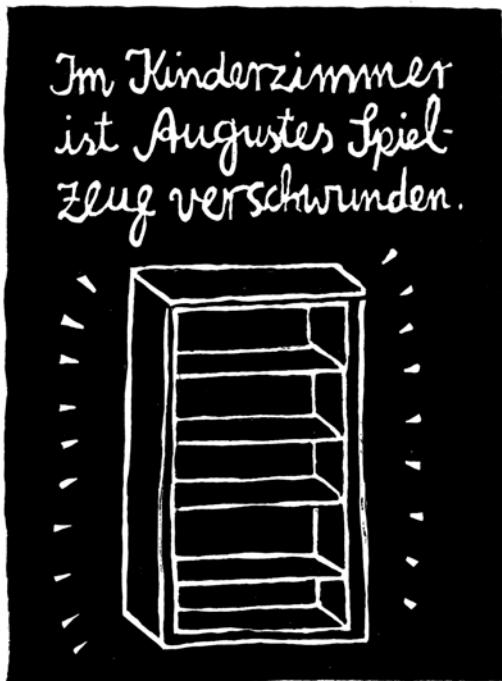 Im Kinderzimmer
ist Augustes Spiel-
zeug verschwunden.